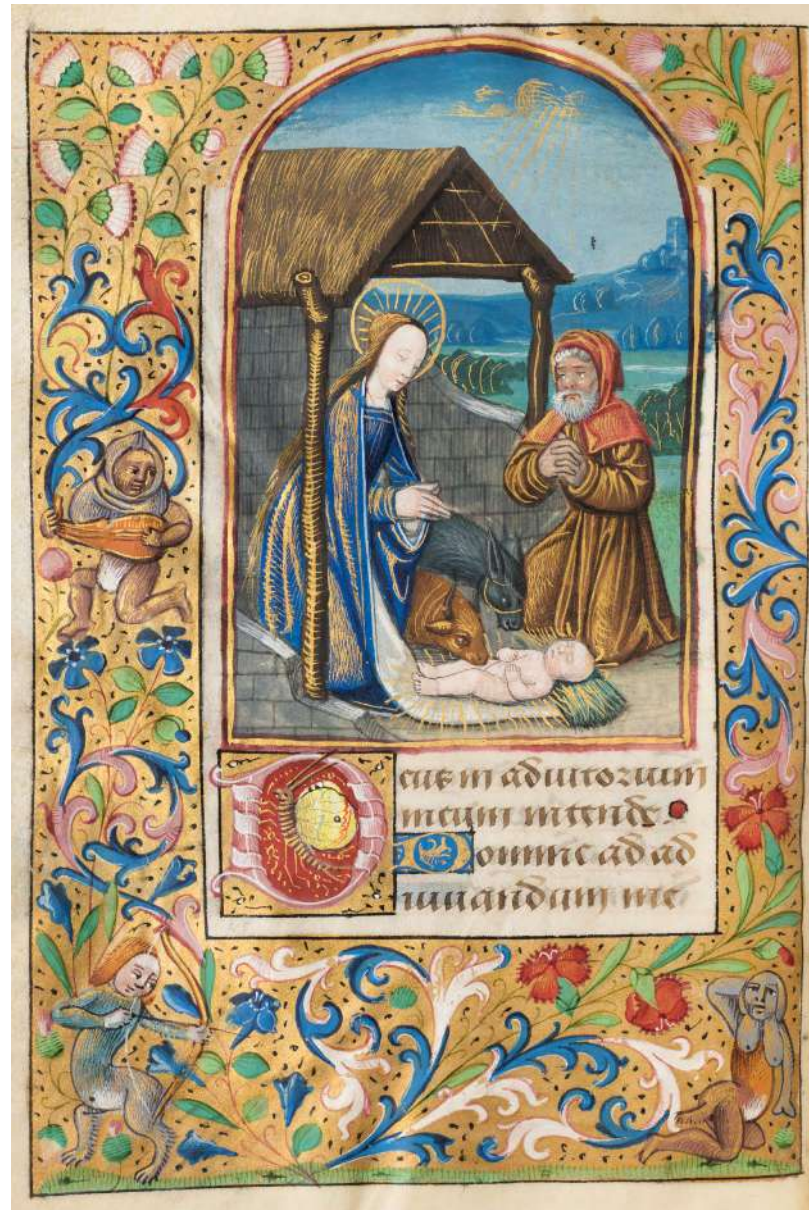 Deus in adiutorium
meum intende
Domine ad ad
iuuandum me